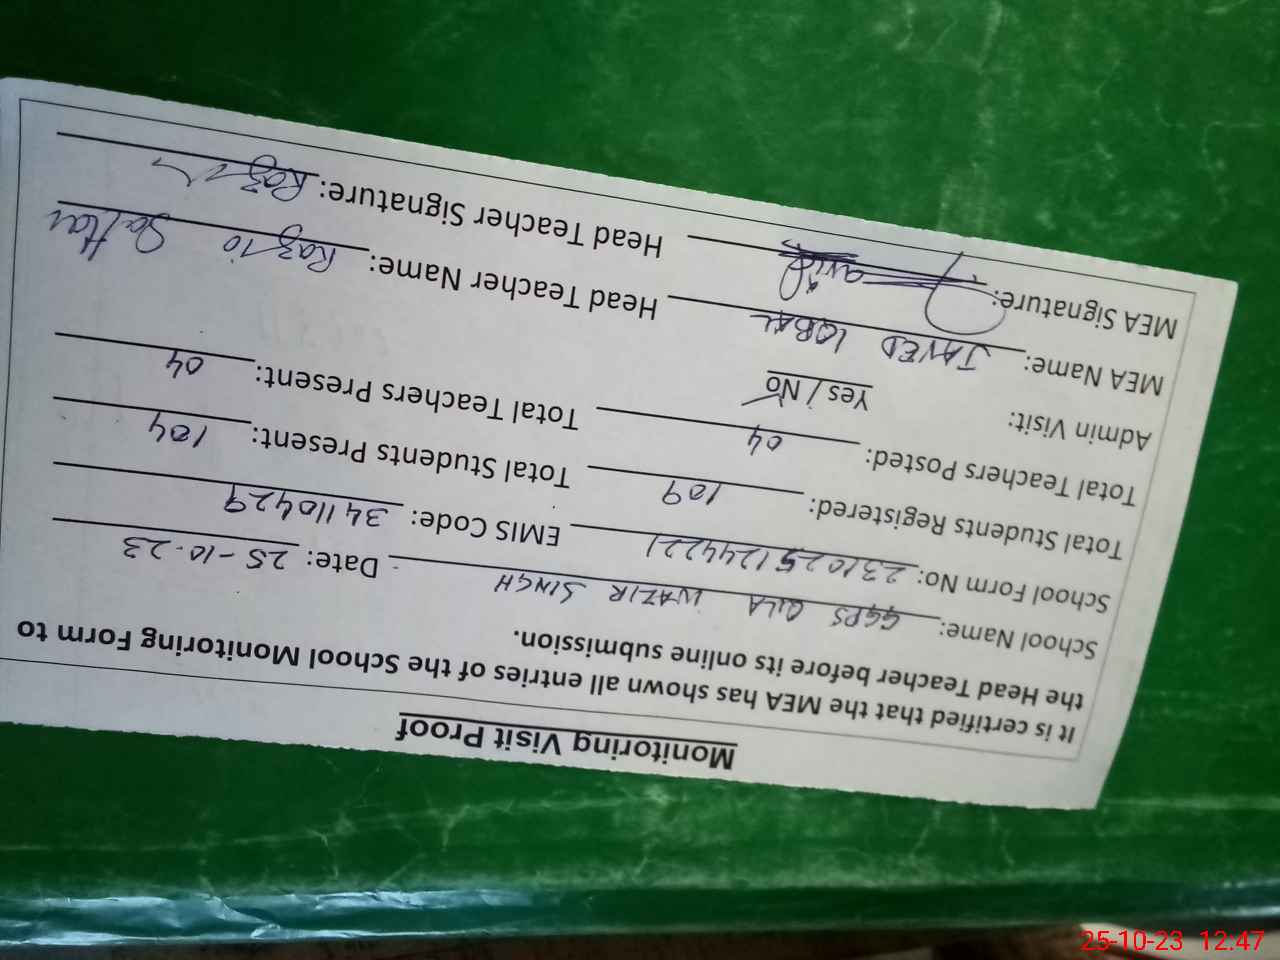 Monitoring Visit Proof
It is certified that the MEA has shown all entries of the School Monitoring Form to
the Head Teacher before its online submission.
School Name: GGPS QILA WAZIR SINGH Date: 25-10-23
School Form No: 231025124421 EMIS Code: 34110429
Total Students Registered: 109 Total Students Present: 104
Total Teachers Posted: 04 Total Teachers Present: 04
Admin Visit: Yes / No
MEA Name: JAVED IQBAL Head Teacher Name: Razia Sattar
MEA Signature: Javid Head Teacher Signature: Razia
25-10-23 12:47